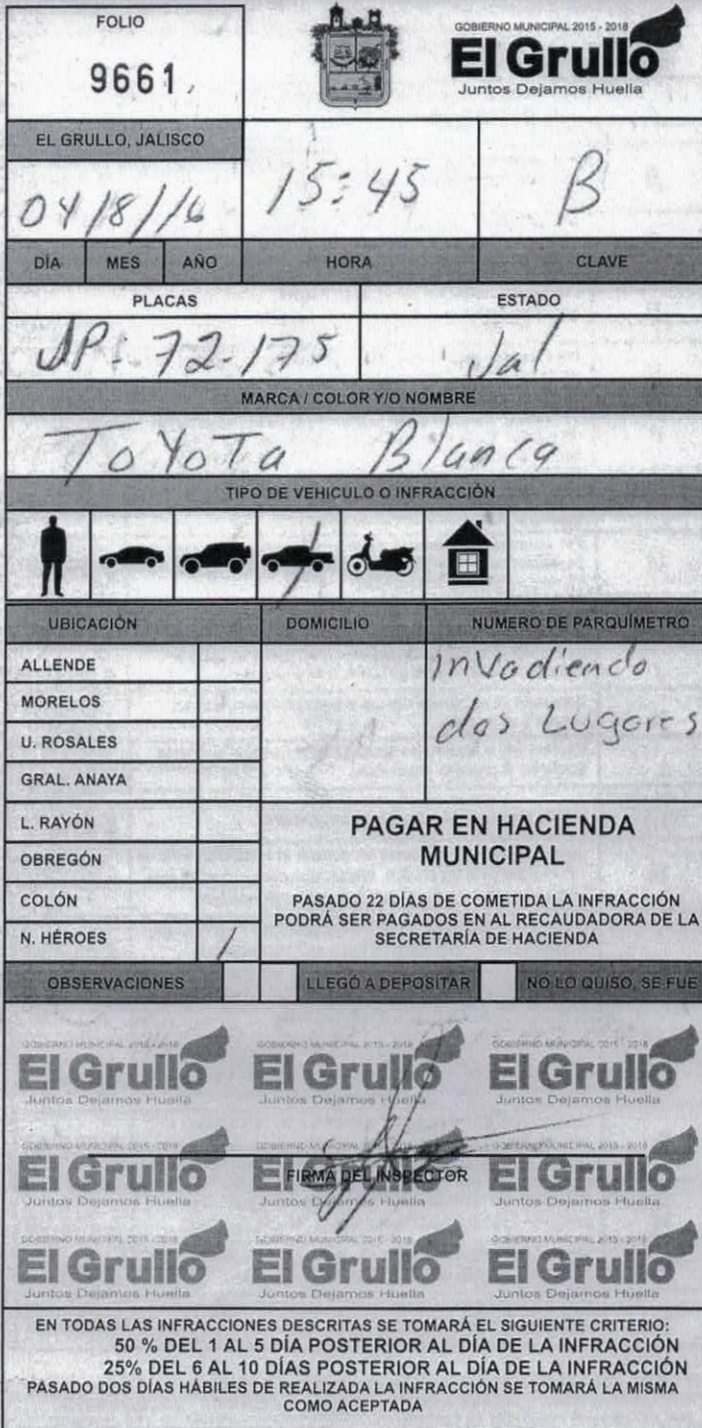 FOLIO
9661
GOBIERNO MUNICIPAL 2015 - 2018
El Grullo
Juntos Dejamos Huella
EL GRULLO, JALISCO
04/8/16
15:45
B
DÍA MES AÑO HORA CLAVE
PLACAS ESTADO
JP: 72-175 Jal
MARCA / COLOR Y/O NOMBRE
ToYoTa Blanca
TIPO DE VEHICULO O INFRACCIÓN
UBICACIÓN DOMICILIO NUMERO DE PARQUÍMETRO
ALLENDE
MORELOS
U. ROSALES
GRAL. ANAYA
L. RAYÓN
OBREGÓN
COLÓN
N. HÉROES /
InVadiendo
dos Lugares
PAGAR EN HACIENDA
MUNICIPAL
PASADO 22 DÍAS DE COMETIDA LA INFRACCIÓN
PODRÁ SER PAGADOS EN AL RECAUDADORA DE LA
SECRETARÍA DE HACIENDA
OBSERVACIONES LLEGÓ A DEPOSITAR NO LO QUISO, SE FUE
GOBIERNO MUNICIPAL 2015 - 2018 GOBIERNO MUNICIPAL 2015 - 2018 GOBIERNO MUNICIPAL 2015 - 2018
El Grullo El Grullo El Grullo
Juntos Dejamos Huella Juntos Dejamos Huella Juntos Dejamos Huella
GOBIERNO MUNICIPAL 2015 - 2018 GOBIERNO MUNICIPAL 2015 - 2018 GOBIERNO MUNICIPAL 2015 - 2018
El Grullo El Grullo El Grullo
FIRMA DEL INSPECTOR
Juntos Dejamos Huella Juntos Dejamos Huella Juntos Dejamos Huella
GOBIERNO MUNICIPAL 2015 - 2018 GOBIERNO MUNICIPAL 2015 - 2018 GOBIERNO MUNICIPAL 2015 - 2018
El Grullo El Grullo El Grullo
Juntos Dejamos Huella Juntos Dejamos Huella Juntos Dejamos Huella
EN TODAS LAS INFRACCIONES DESCRITAS SE TOMARÁ EL SIGUIENTE CRITERIO:
50 % DEL 1 AL 5 DÍA POSTERIOR AL DÍA DE LA INFRACCIÓN
25% DEL 6 AL 10 DÍAS POSTERIOR AL DÍA DE LA INFRACCIÓN
PASADO DOS DÍAS HÁBILES DE REALIZADA LA INFRACCIÓN SE TOMARÁ LA MISMA
COMO ACEPTADA